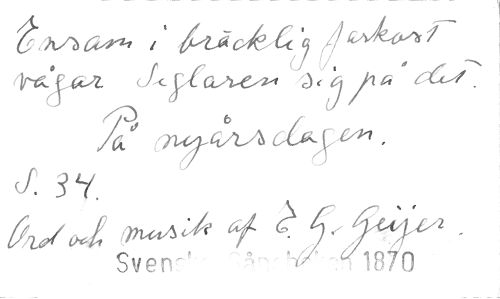 Ensam i bräcklig farkost
vågar Seglaren sig på det.
På nyårsdagen.
S. 34.
Ord och musik af E. G. Geijer.
Svenska Sångboken 1870